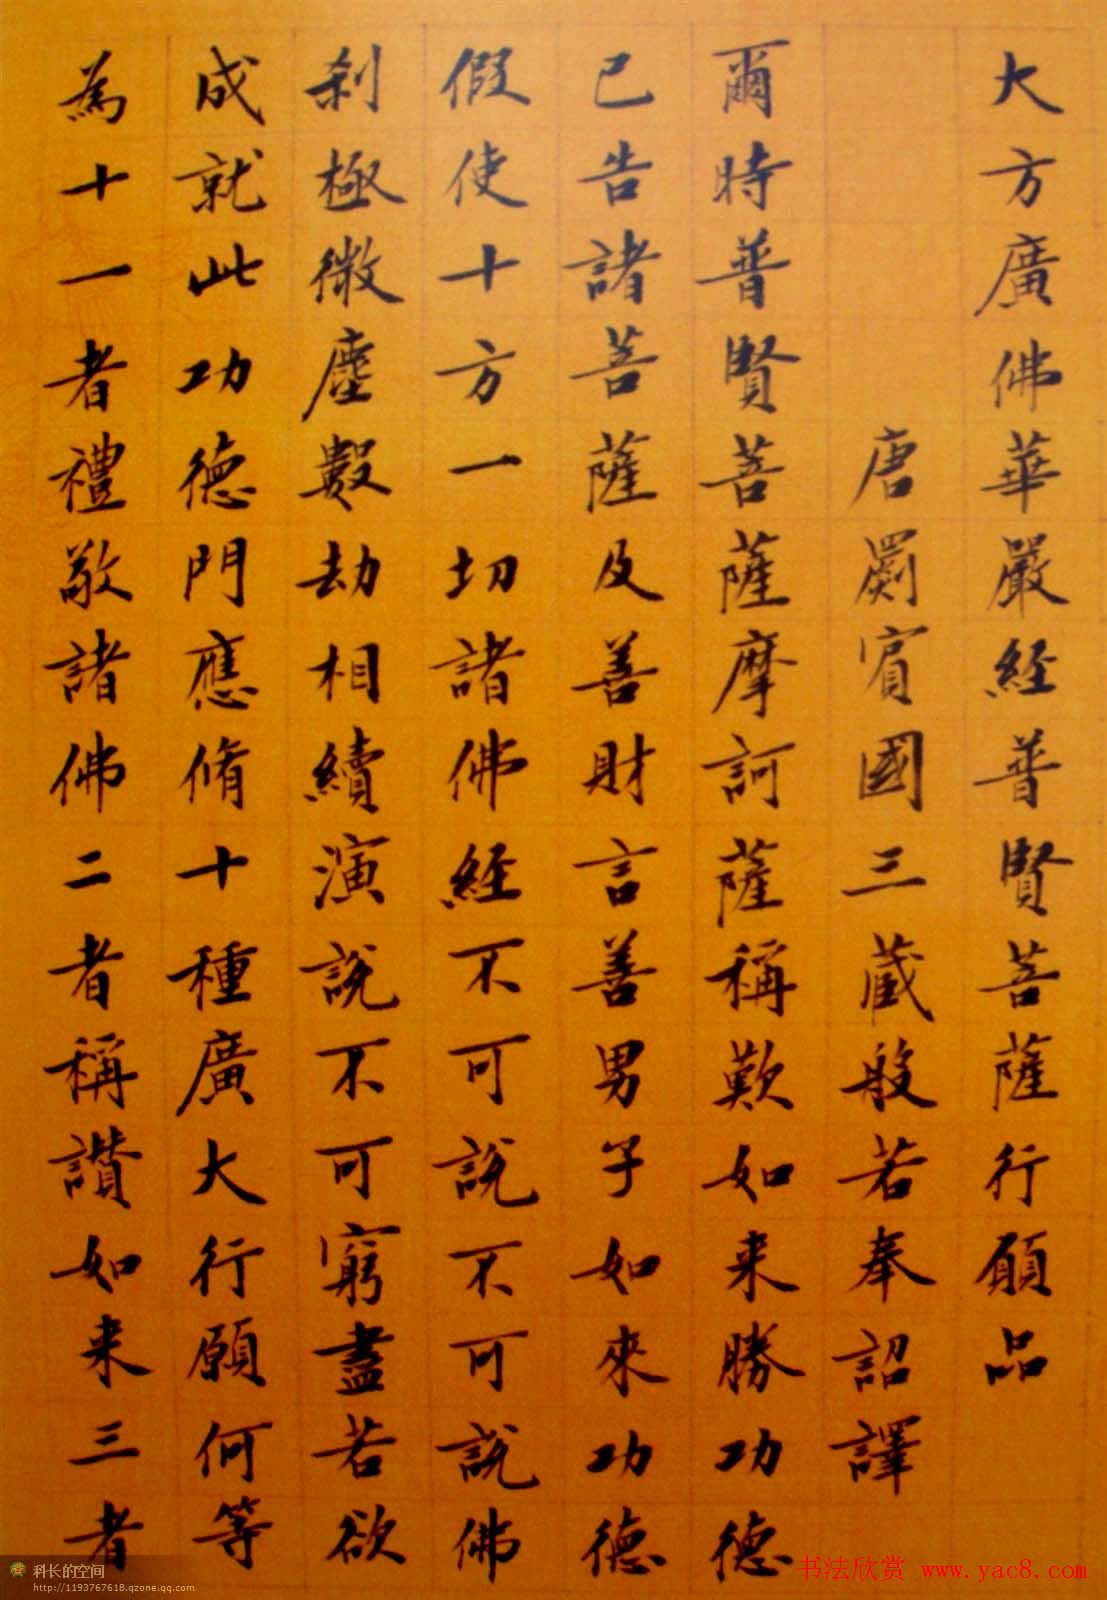 大方廣佛華嚴経普賢菩薩行願品
唐罽賓國三藏般若奉詔譯
爾時普賢菩薩摩訶薩稱歎如来勝功德
已告諸菩薩及善財言善男子如來功德
假使十方一切諸佛経不可說不可說佛
刹極微塵數劫相續演說不可窮盡若欲
成就此功德門應脩十種廣大行願何等
為十一者禮敬諸佛二者稱讃如来三者
科长的空间
http://1193767618.qzone.qq.com
书法欣赏 www.yac8.com